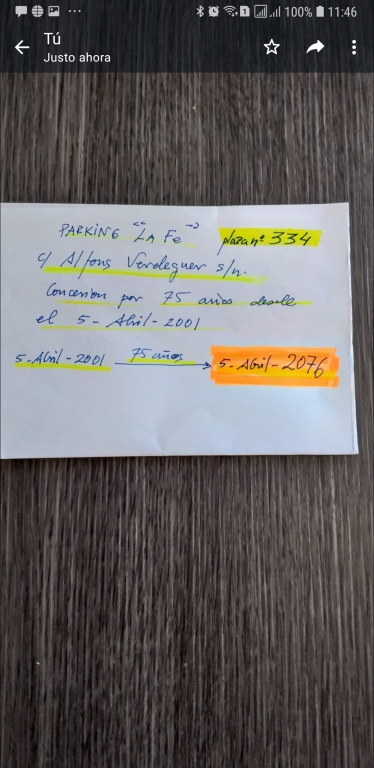 100% 11:46
Tú
Justo ahora
PARKING "LA FE" plaza nº 334
c/ Alfons Verdeguer s/n.
Concesion por 75 años desde
el 5-Abril-2001
5-Abril-2001 75 años 5-Abril-2076